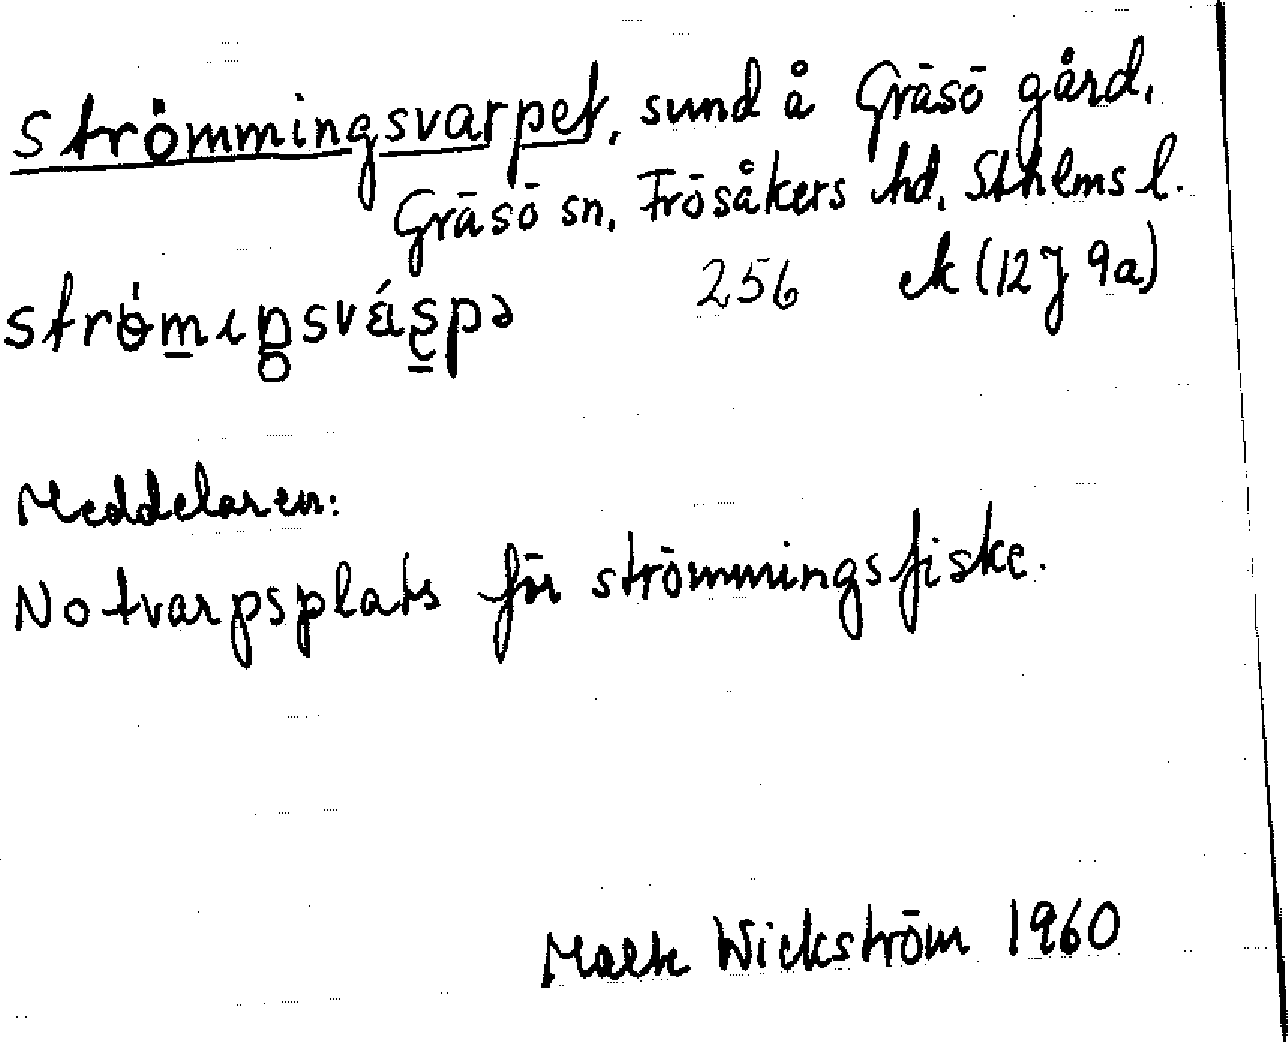 Strömmingsvarpet, sund å Gräsö gård,
Gräsö sn, Frösåkers hd, Sthlms l.
256 ek (12J 9a)
Meddelaren:
Notvarpsplats för strömmingsfiske.
Malte Wickström 1960